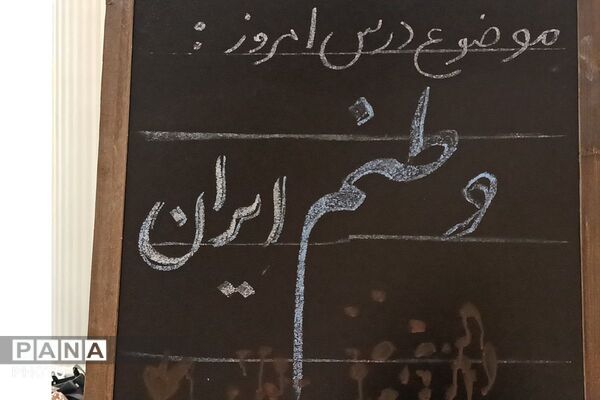 موضوع درس امروز :
وطنم ایران
PANA
PHOTO